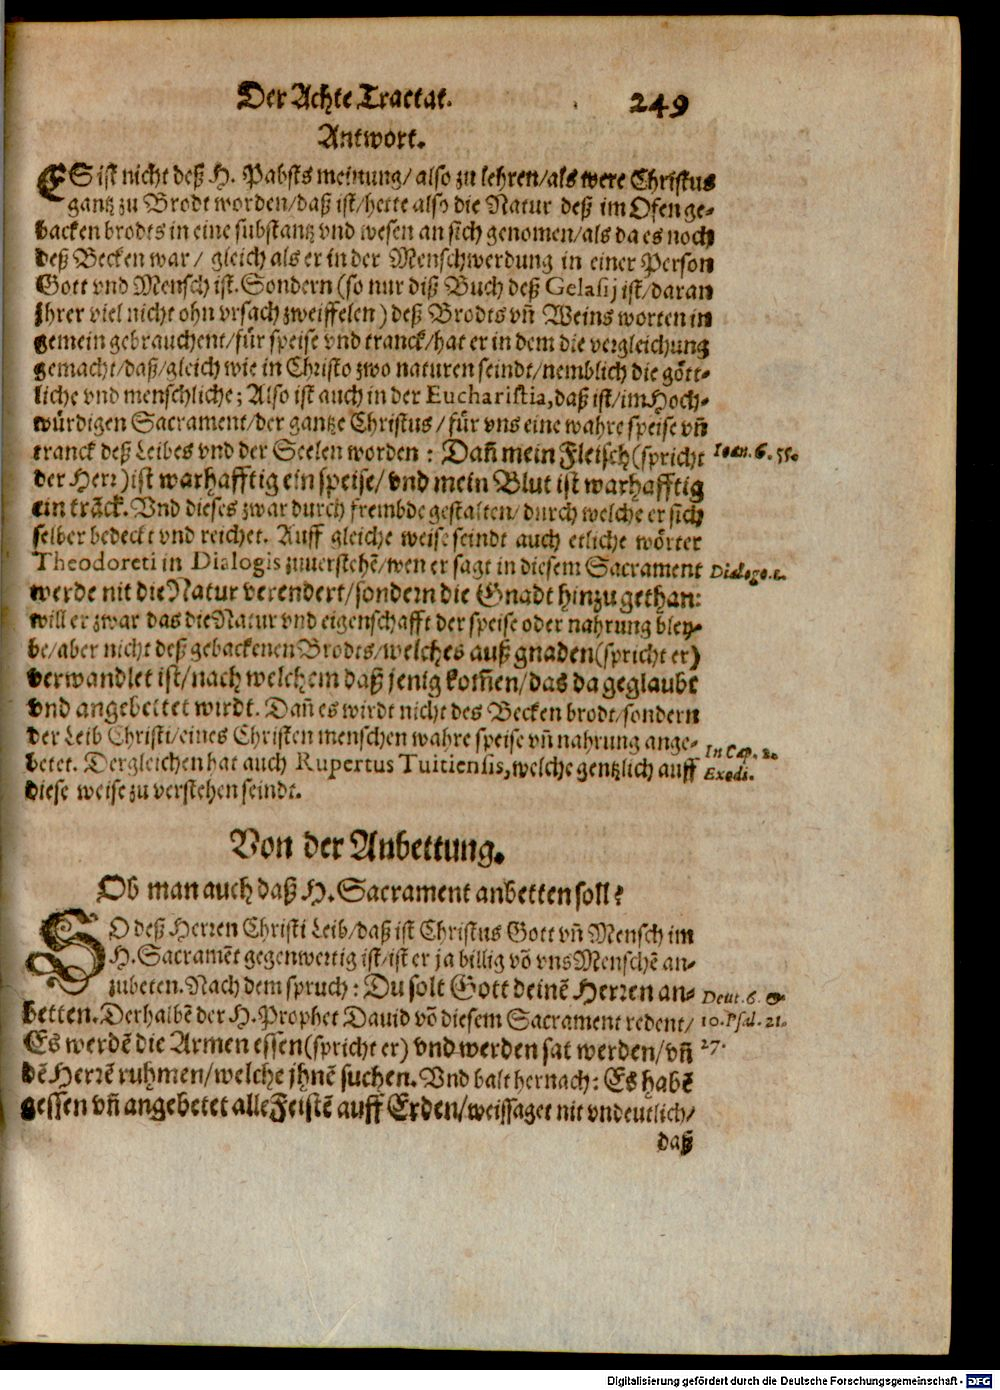 Der Achte Tractat. 249
Antwort.
ES ist nicht deß H. Pabsts meinung/ also zu lehren/ als were Christus
gantz zu Brodt worden/ daß ist/ hette also die Natur deß im Ofen ge-
backen brodts in eine substantz vnd wesen an sich genomen/ als da es noch
deß Becken war/ gleich als er in der Menschwerdung in einer Person
Gott vnd Mensch ist. Sondern (so nur diß Buch deß Gelasij ist/ daran
jhrer viel nicht ohn vrsach zweiffelen) deß Brodts vn̄ Weins worten in
gemein gebrauchent/ für speise vnd tranck/ hat er in dem die vergleichung
gemacht/ daß/ gleich wie in Christo zwo naturen seindt/ nemblich die gött-
liche vnd menschliche; Also ist auch in der Eucharistia, daß ist/ im Hoch-
würdigen Sacrament/ der gantze Christus/ für vns eine wahre speise vn̄
tranck deß Leibes vnd der Seelen worden: Dan̄ mein Fleisch (spricht
Ioan. 6. 55.
der Herr) ist warhafftig ein speise/ vnd mein Blut ist warhafftig
ein trāck. Vnd dieses zwar durch frembde gestalten/ durch welche er sich
selber bedeckt vnd reichet. Auff gleiche weise seindt auch etliche wörter
Theodoreti in Dialogis zuuerstehē/ wen er sagt in diesem Sacrament
Dialogo. 1.
werde nit die Natur verendert/ sondern die Gnadt hinzu gethan:
will er zwar das die Natur vnd eigenschafft der speise oder nahrung bley-
be/ aber nicht deß gebackenen Brodts/ welches auß gnaden (spricht er)
verwandlet ist/ nach welchem daß jenig kom̄en/ das da geglaubt
vnd angebettet wirdt. Dan̄ es wirdt nicht des Becken brodt/ sondern
der Leib Christi/ eines Christen menschen wahre speise vn̄ nahrung ange-
betet. Dergleichen hat auch Rupertus Tuitiensis, welche gentzlich auff
In Cap. 2.
Exodi.
diese weise zu verstehen seindt.
Von der Anbettung.
Ob man auch daß H. Sacrament anbetten soll?
SO deß Herren Christi Leib/ daß ist Christus Gott vn̄ Mensch im
H. Sacramēt gegenwertig ist/ ist er ja billig vō vns Menschē an-
zubeten. Nach dem spruch: Du solt Gott deinē Herren an-
Deut. 6. &
betten. Derhalbē der H. Prophet Dauid vō diesem Sacrament redent/
10. Psal. 21.
Es werdē die Armen essen (spricht er) vnd werden sat werden/ vn̄
27.
dē Herrē ruhmen/ welche jhnē suchen. Vnd balt hernach: Es habē
gessen vn̄ angebetet alle Feistē auff Erden/ weissaget nit vndeutlich/
daß
Digitalisierung gefördert durch die Deutsche Forschungsgemeinschaft - DFG